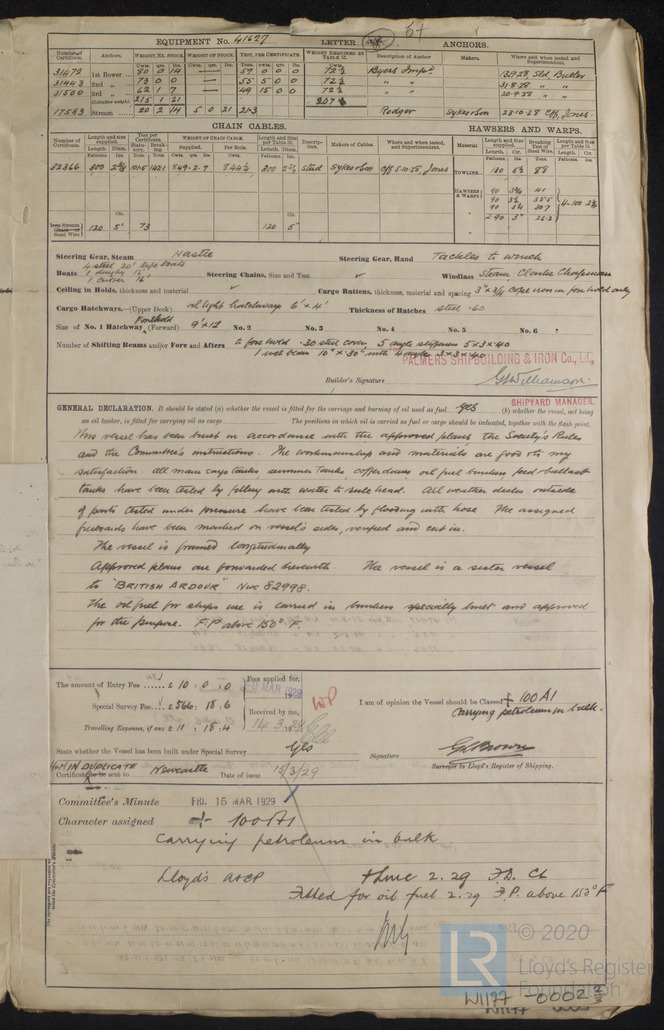 57
EQUIPMENT No. 41627 LETTER ANCHORS.
Number of Certificate. Anchors. WEIGHT, EX. STOCK WEIGHT OF STOCK. TEST, PER CERTIFICATE. WEIGHT REQUIRED BY TABLE 31. Description of Anchor Makers. Where and when tested and Superintendent.
Cwts. qrs. lbs. Cwts. qrs. lbs. Tons. cwts. qrs. lbs. Cwts.
31472 1st Bower 80 0 14 — 59 0 0 0 72½ Byers Impd. 13.9.28 Sld. Butler
31443 2nd „ 73 0 0 — 55 5 0 0 72½ „ „ 31.8.28 „ „
31500 3rd „ 62 1 7 — 49 15 0 0 72½ „ „ 20.9.28 „ „
Collective weight. 215 1 21 207
17583 Stream 20 2 14 5 0 21 Rodger Sykes & Son 23-10-28 Cff. Jones.
CHAIN CABLES. HAWSERS AND WARPS.
Number of Certificate. Length and size supplied. Test per Certificate. WEIGHT OF CHAIN CABLE. Length and Size per Table 31. Description. Makers of Cables. Where and when tested, and Superintendent. Material Length and Size supplied. Breaking Test of Steel Wire. Length and Size per Table 31.
Length. Diam. Supplied. Per Rule. Length. Diam. Length. Cir. Length. Cir.
32366 300 101.5 142.1 549-2-7 300 Stud Sykes & Son Cff 5-10-28 Jones TOWLINE 130 88
HAWSERS & WARPS 90 41
90
90
2-90 26.2
Iron Stream Chain or Steel Wire 120 5" 73 120 5"
Steering Gear, Steam Hastie Steering Gear, Hand Tackles to winch
Boats 4 steel 26' life boats
1 dinghy 16'
1 cutter 16' Steering Chains, Size and Test ✓ Windlass Steam Clarke Chapman
Ceiling in Holds, thickness and material ✓ Cargo Battens, thickness, material and spacing
Cargo Hatchways.—(Upper Deck) oil tight hatchways 6' × 4' Thickness of Hatches steel .60
Size of No. 1 Hatchway (Forward) Forehold 9' × 12 No. 2 No. 3 No. 4 No. 5 No. 6 ?
Number of Shifting Beams and/or Fore and Afters to fore hold .30 steel cover, 5 angle stiffeners 5 × 3 × .40
1 web beam 10" × .30" with 4 angles 3 × 3 × .40
PALMERS SHIPBUILDING & IRON Co., Ltd.
Builder's Signature G. Williamson.
SHIPYARD MANAGER.
GENERAL DECLARATION. It should be stated (a) whether the vessel is fitted for the carriage and burning of oil used as fuel yes (b) whether the vessel, not being
an oil tanker, is fitted for carrying oil as cargo The positions in which oil is carried as fuel or cargo should be indicated, together with the flash point.
This vessel has been built in accordance with the approved plans the Society's Rules
and the Committee's instructions. The workmanship and materials are good to my
satisfaction all main cargo tanks, summer tanks cofferdams, oil fuel bunkers, feed & ballast
tanks have been tested by filling with water to rule head. All weather decks outside
of parts tested under pressure have been tested by flooding with hose. The assigned
freeboards have been marked on vessel's sides, verified and cut in.
The vessel is framed longitudinally
Approved plans are forwarded herewith The vessel is a sister vessel
to "BRITISH ARDOUR" Nwc 82998.
The oil fuel for ships use is carried in bunkers specially built and approved
for the purpose. F.P. above 150° F.
The amount of Entry Fee £ 10 : 0 : 0 Fees applied for,
MAR 1929
Special Survey Fee £ 566 : 18 : 6 Received by me,
14.3.29
Travelling Expenses, if any £ 11 : 18 : 4
I am of opinion the Vessel should be Classed + 100A1
Carrying petroleum in bulk.
State whether the Vessel has been built under Special Survey Yes
Signature G. Brown
Surveyor to Lloyd's Register of Shipping.
IN DUPLICATE
Certificate to be sent to Newcastle Date of issue 15/3/29
Committee's Minute FRI. 15 MAR 1929
Character assigned + 100A1
Carrying petroleum in bulk
Lloyd's A&CP + LMC 2.29 F.D. CL
Fitted for oil fuel 2.29 F.P. above 150°F
LR
© 2020
Lloyd's Register
Foundation
W1177-0002 2/3